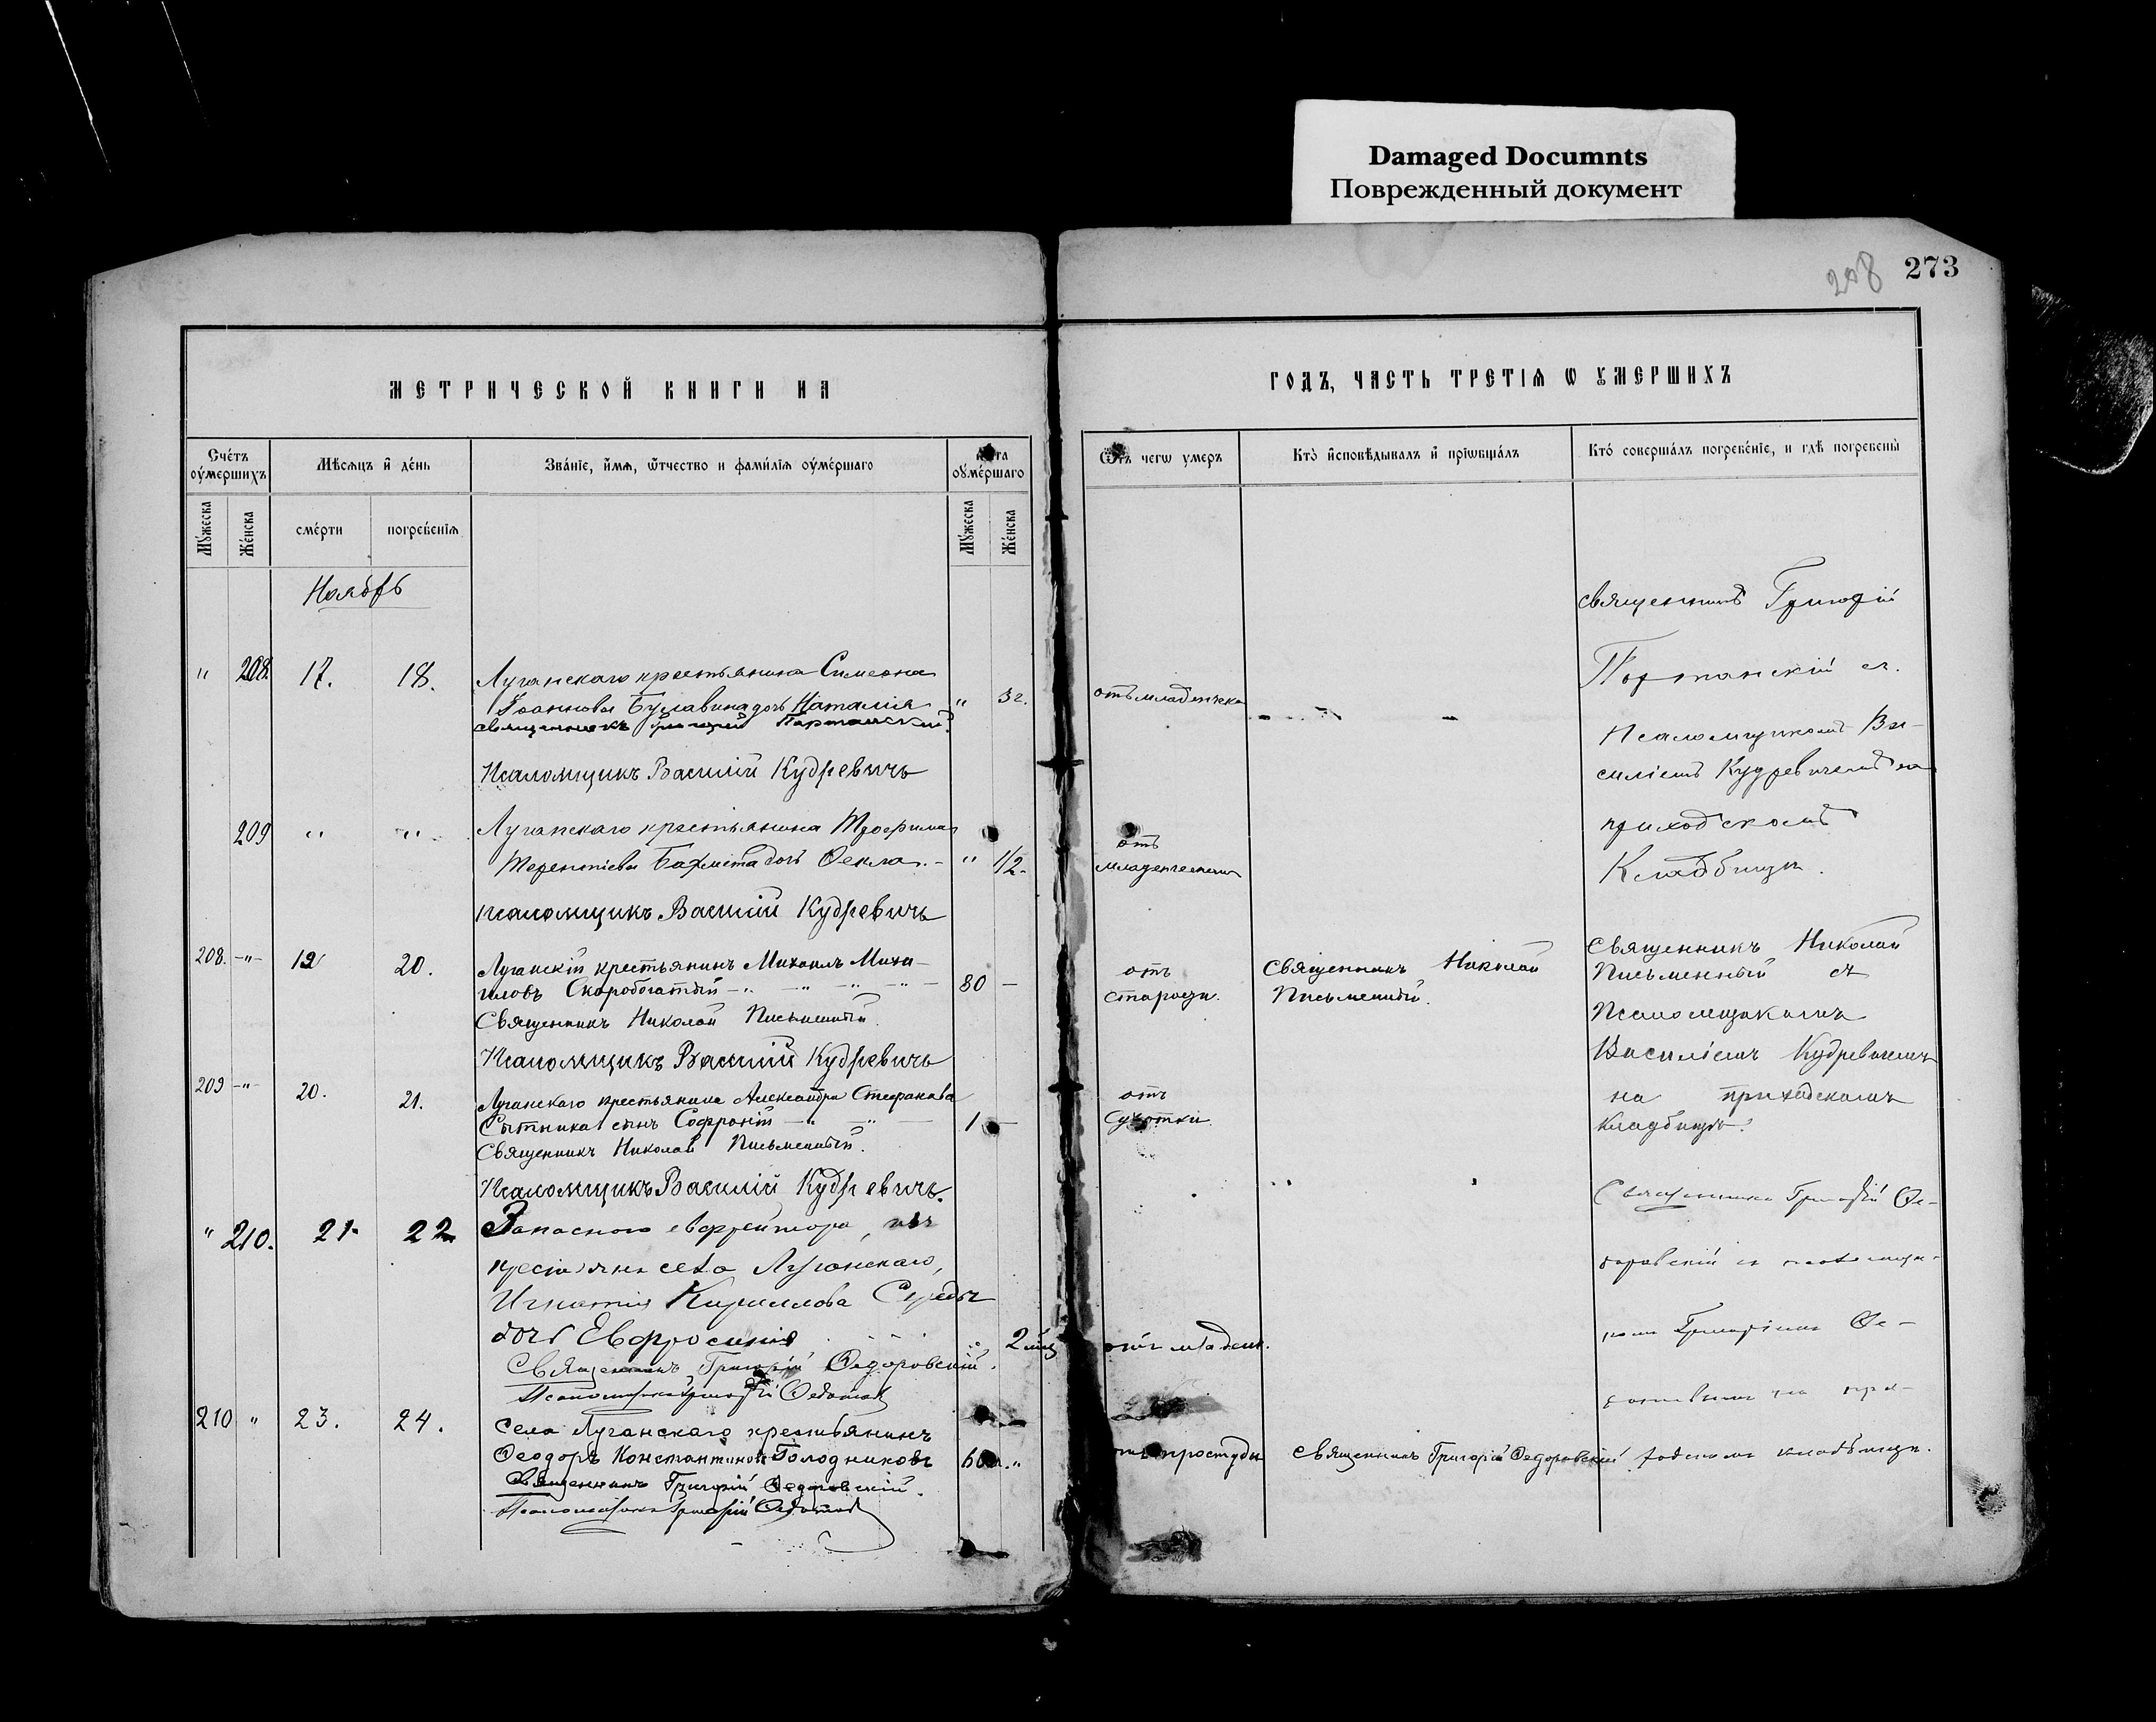 Damaged Documnts
Поврежденный документ
208 273
МЕТРИЧЕСКОЙ КНИГИ НА
ГОДЪ, ЧАСТЬ ТРЕТІЯ Ѡ ꙊМЕРШИХЪ
Счетъ оумершихъ
Мѣсяцъ и день
Званіе, имя, ѿчество и фамилія оумершаго
Лѣта оумершаго
Ѿ чегѡ умеръ
Кто исповѣдывалъ и пріѡбщалъ
Кто совершалъ погребеніе, и гдѣ погребены
Мужеска
Женска
смерти
погребенія
Мужеска
Женска
Ноябрь
" 208. 17. 18. Луганскаго крестьянина Симеона
Іоаннова Буславина дочь Наталія " 3 г. отъ младенческ
священникъ Григорій Портанскій
Псаломщикъ Василій Кудревичъ
священникъ Григорій
Портанскій съ
Псаломщикомъ Ва-
силіемъ Кудревичемъ на
приходскомъ
Кладбищѣ.
209 " " Луганскаго крестьянина Трофима
Терентіева Бахмета дочь Ѳекла. " 1/2. отъ
младенческой
псаломщикъ Василій Кудревичъ
208. -"- 19 20. Луганскій крестьянинъ Михаилъ Миха-
иловъ Скоробогатый 80 — отъ
старости.
Священникъ Николай
Письменный.
Священникъ Николай Письменный.
Псаломщикъ Василій Кудревичъ
Священникъ Николай
Письменный съ
Псаломщикомъ
Василіемъ Кудревичемъ
на приходскомъ
кладбищѣ.
209 -"- 20. 21. Луганскаго крестьянина Александра Стефанова
Сытника сынъ Софроній 1 — отъ
Сухотки
Священникъ Николай Письменный.
Псаломщикъ Василій Кудревичъ.
" 210. 21. 22 Запаснаго ефрейтора, изъ
крестьянъ села Луганскаго,
Игнатія Кириллова Середы
дочь Евфросинія " 2 мѣс отъ младен.
Священникъ Григорій Ѳедоровскій.
Псаломщикъ Григорій Ѳедотовъ
Священникъ Григорій Ѳе-
доровскій съ псаломщи-
комъ Григоріемъ Ѳе-
дотовымъ на при-
ходскомъ кладбищѣ.
210 " 23. 24. Села Луганскаго крестьянинъ
Ѳеодоръ Константиновъ Голодниковъ 60 " отъ простуды Священникъ Григорій Ѳедоровскій
Священникъ Григорій Ѳедоровскій.
Псаломщикъ Григорій Ѳедотовъ